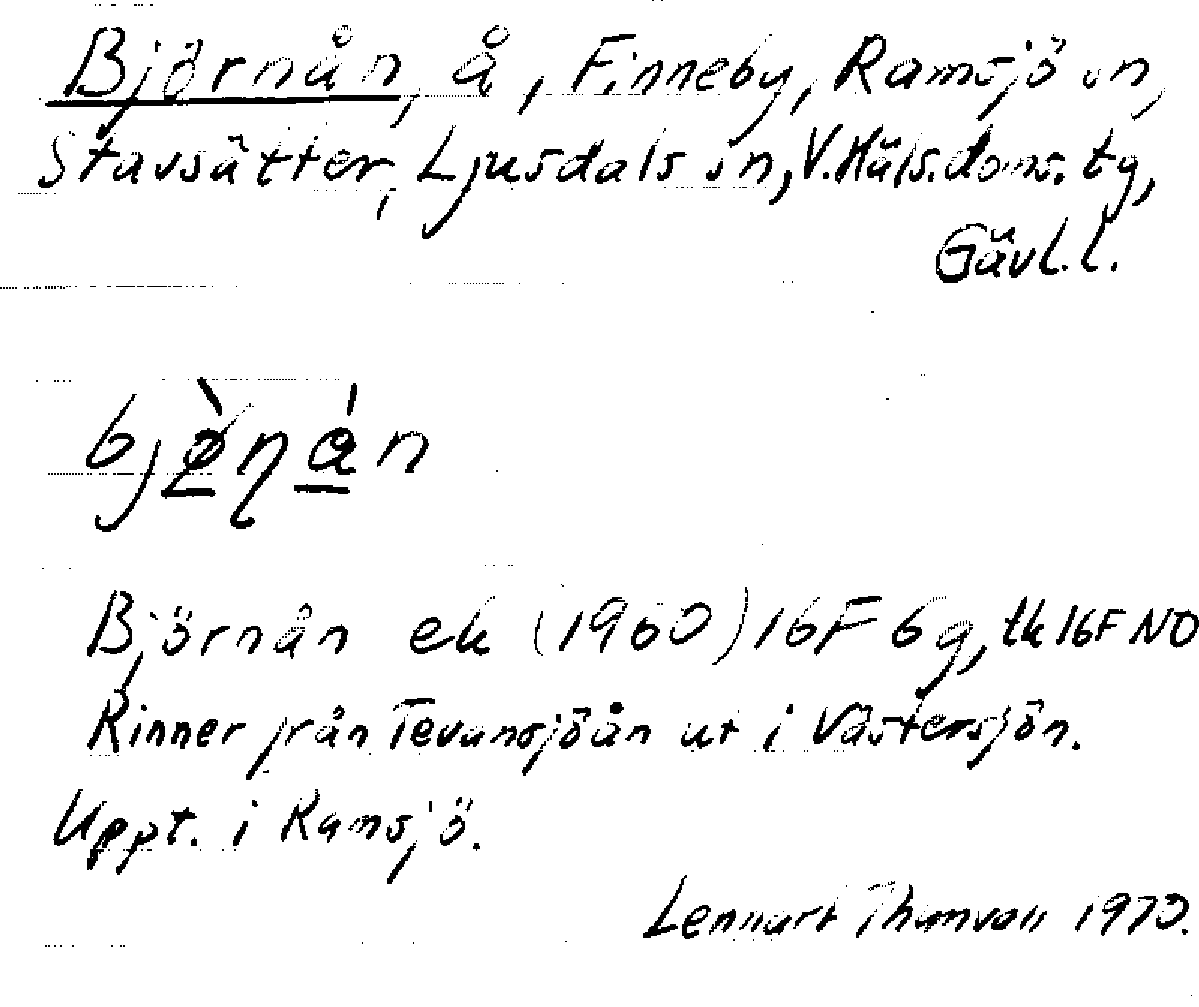 Björnån, å, Finneby, Ramsjö sn,
Stavsätter, Ljusdals sn, V. Häls. doms. tg,
Gävl. l.
bjø̀ṇán
Björnån ek (1960) 16F 6g, tk 16F NO
Rinner från Tevansjöån ut i Västersjön.
Uppt. i Ramsjö.
Lennart 1970.